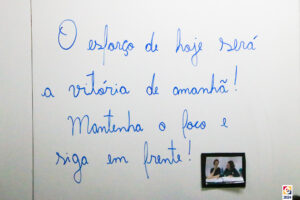 O esforço de hoje será
a vitória de amanhã!
Mantenha o foco e
siga em frente!